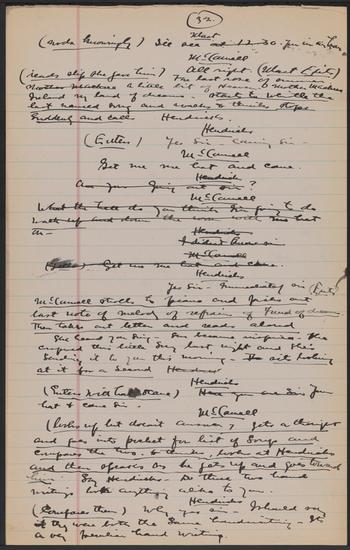 32.
Klaet
(nods knowingly) I'll see at 12.30.
McCannell
All right. (Klaet Exits)
(reads slip she gave him) The last rose of summer
Mother Machree a little bit of Heaven & Mother Machree
Ireland my land of dreams. Starts to whistle the
last named song and works & thinks. Stops
suddenly and calls Hendricks.
Hendricks
(Enters) Yes Sir - Coming Sir -
McCannell
Get me my hat and cane
Hendricks
Are you going out sir?
McCannell
What the hell do you think I'm going to do
walk up and down the room with my hat
on -
Hendricks
I didn't know sir
McCannell
Get me my hat and cane
Hendricks
Yes Sir - Immediately sir (Exits)
McCannell strolls to piano and picks out
last note of melody of refrain of Land of dreams
Then takes out letter and reads aloud
She heard you sing - She became inspired. She
composed this little song last night and she's
sending it to you this morning - sits looking
at it for a second
Hendricks
(Enters with hat & cane) Here you are Sir your
hat & cane Sir.
McCannell
(looks up but doesn't answer, gets a thought
and goes into pocket for list of songs and
compares the two. looks at Hendricks
and then speaks as he gets up and goes toward
him. Say Hendricks - Do these two hand
writings look anything alike to you.
Hendricks
(Compares them) Why yes sir. I should say
they were both the same handwriting - It's
a very peculiar hand writing.